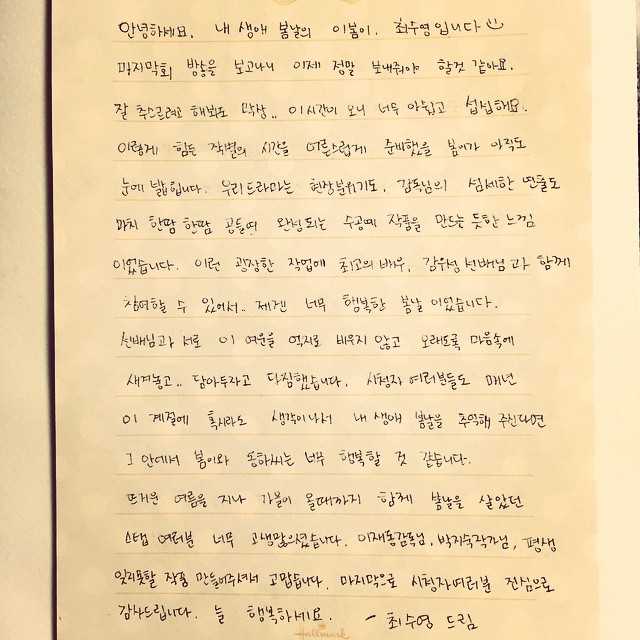 안녕하세요. 내 생애 봄날의 이봄이. 최수영입니다
마지막회 방송을 보고나니 이제 정말 보내줘야 할것 같아요.
잘 추스르려고 해봐도 막상.. 이시간이 오니 너무 아쉽고 섭섭해요.
이렇게 힘든 작별의 시간을 어른스럽게 준비했을 봄이가 아직도
눈에 밟힙니다. 우리드라마는 현장분위기도, 감독님의 섬세한 연출도
마치 한땀 한땀 공들여 완성되는 수공예 작품을 만드는 듯한 느낌
이었습니다. 이런 굉장한 작업에 최고의 배우, 감우성 선배님과 함께
참여할 수 있어서.. 제겐 너무 행복한 봄날 이었습니다.
선배님과 서로 이 여운을 억지로 비우지 않고 오래도록 마음속에
새겨놓고.. 담아두자고 다짐했습니다. 시청자 여러분들도 매년
이 계절에 혹시라도 생각이나서 내 생애 봄날을 추억해 주신다면
그 안에서 봄이와 동하씨는 너무 행복할 것 같습니다.
뜨거운 여름을 지나 가을이 올때까지 함께 봄날을 살았던
스탭 여러분 너무 고생많으셨습니다. 이재동감독님, 박지숙작가님, 평생
잊지못할 작품 만들어주셔서 고맙습니다. 마지막으로 시청자여러분 진심으로
감사드립니다. 늘 행복하세요. - 최수영 드림
Hallmark